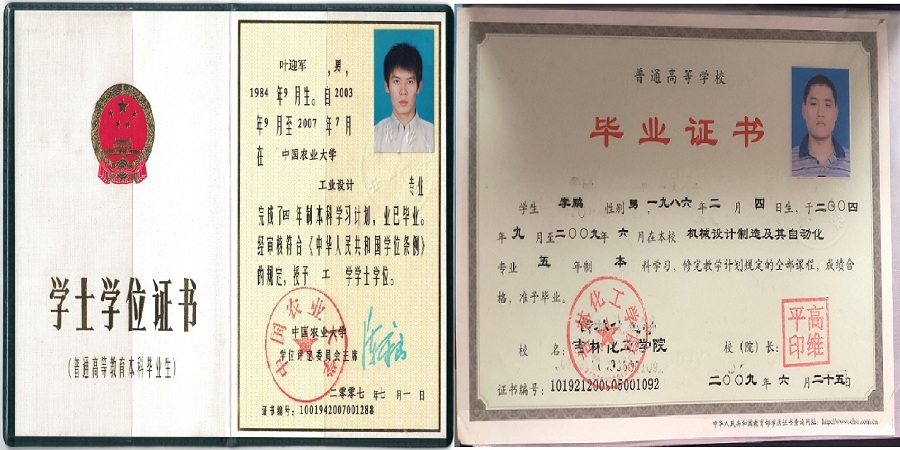 学士学位证书
(普通高等教育本科毕业生)
叶迎军 ,男,
1984 年9 月生。自2003
年9 月至 2007 年 7月
在 中国农业大学
工业设计 专业
完成了四 年制本科学习计划,业已毕业。
经审核符合《中华人民共和国学位条例》
的规定,授予 工 学学士学位。
中国农业大学
学位评定委员会主席
二〇〇七年七月一日
证书编号:1001942007001288
普通高等学校
毕业证书
学生 李鹏 性别 男,一九八六年 二 月 四 日生,于二〇〇四
年 九 月至二〇〇九年 六 月在本校 机械设计制造及其自动化
专业 五 年制 本 科学习,修完教学计划规定的全部课程,成绩合
格,准予毕业。
校 名:吉林化工学院
校(院)长:
高维平印
证书编号:101921200905001092
二〇〇九 年 六 月二十五日
中华人民共和国教育部学历证书查询网址:http://www.chsi.com.cn